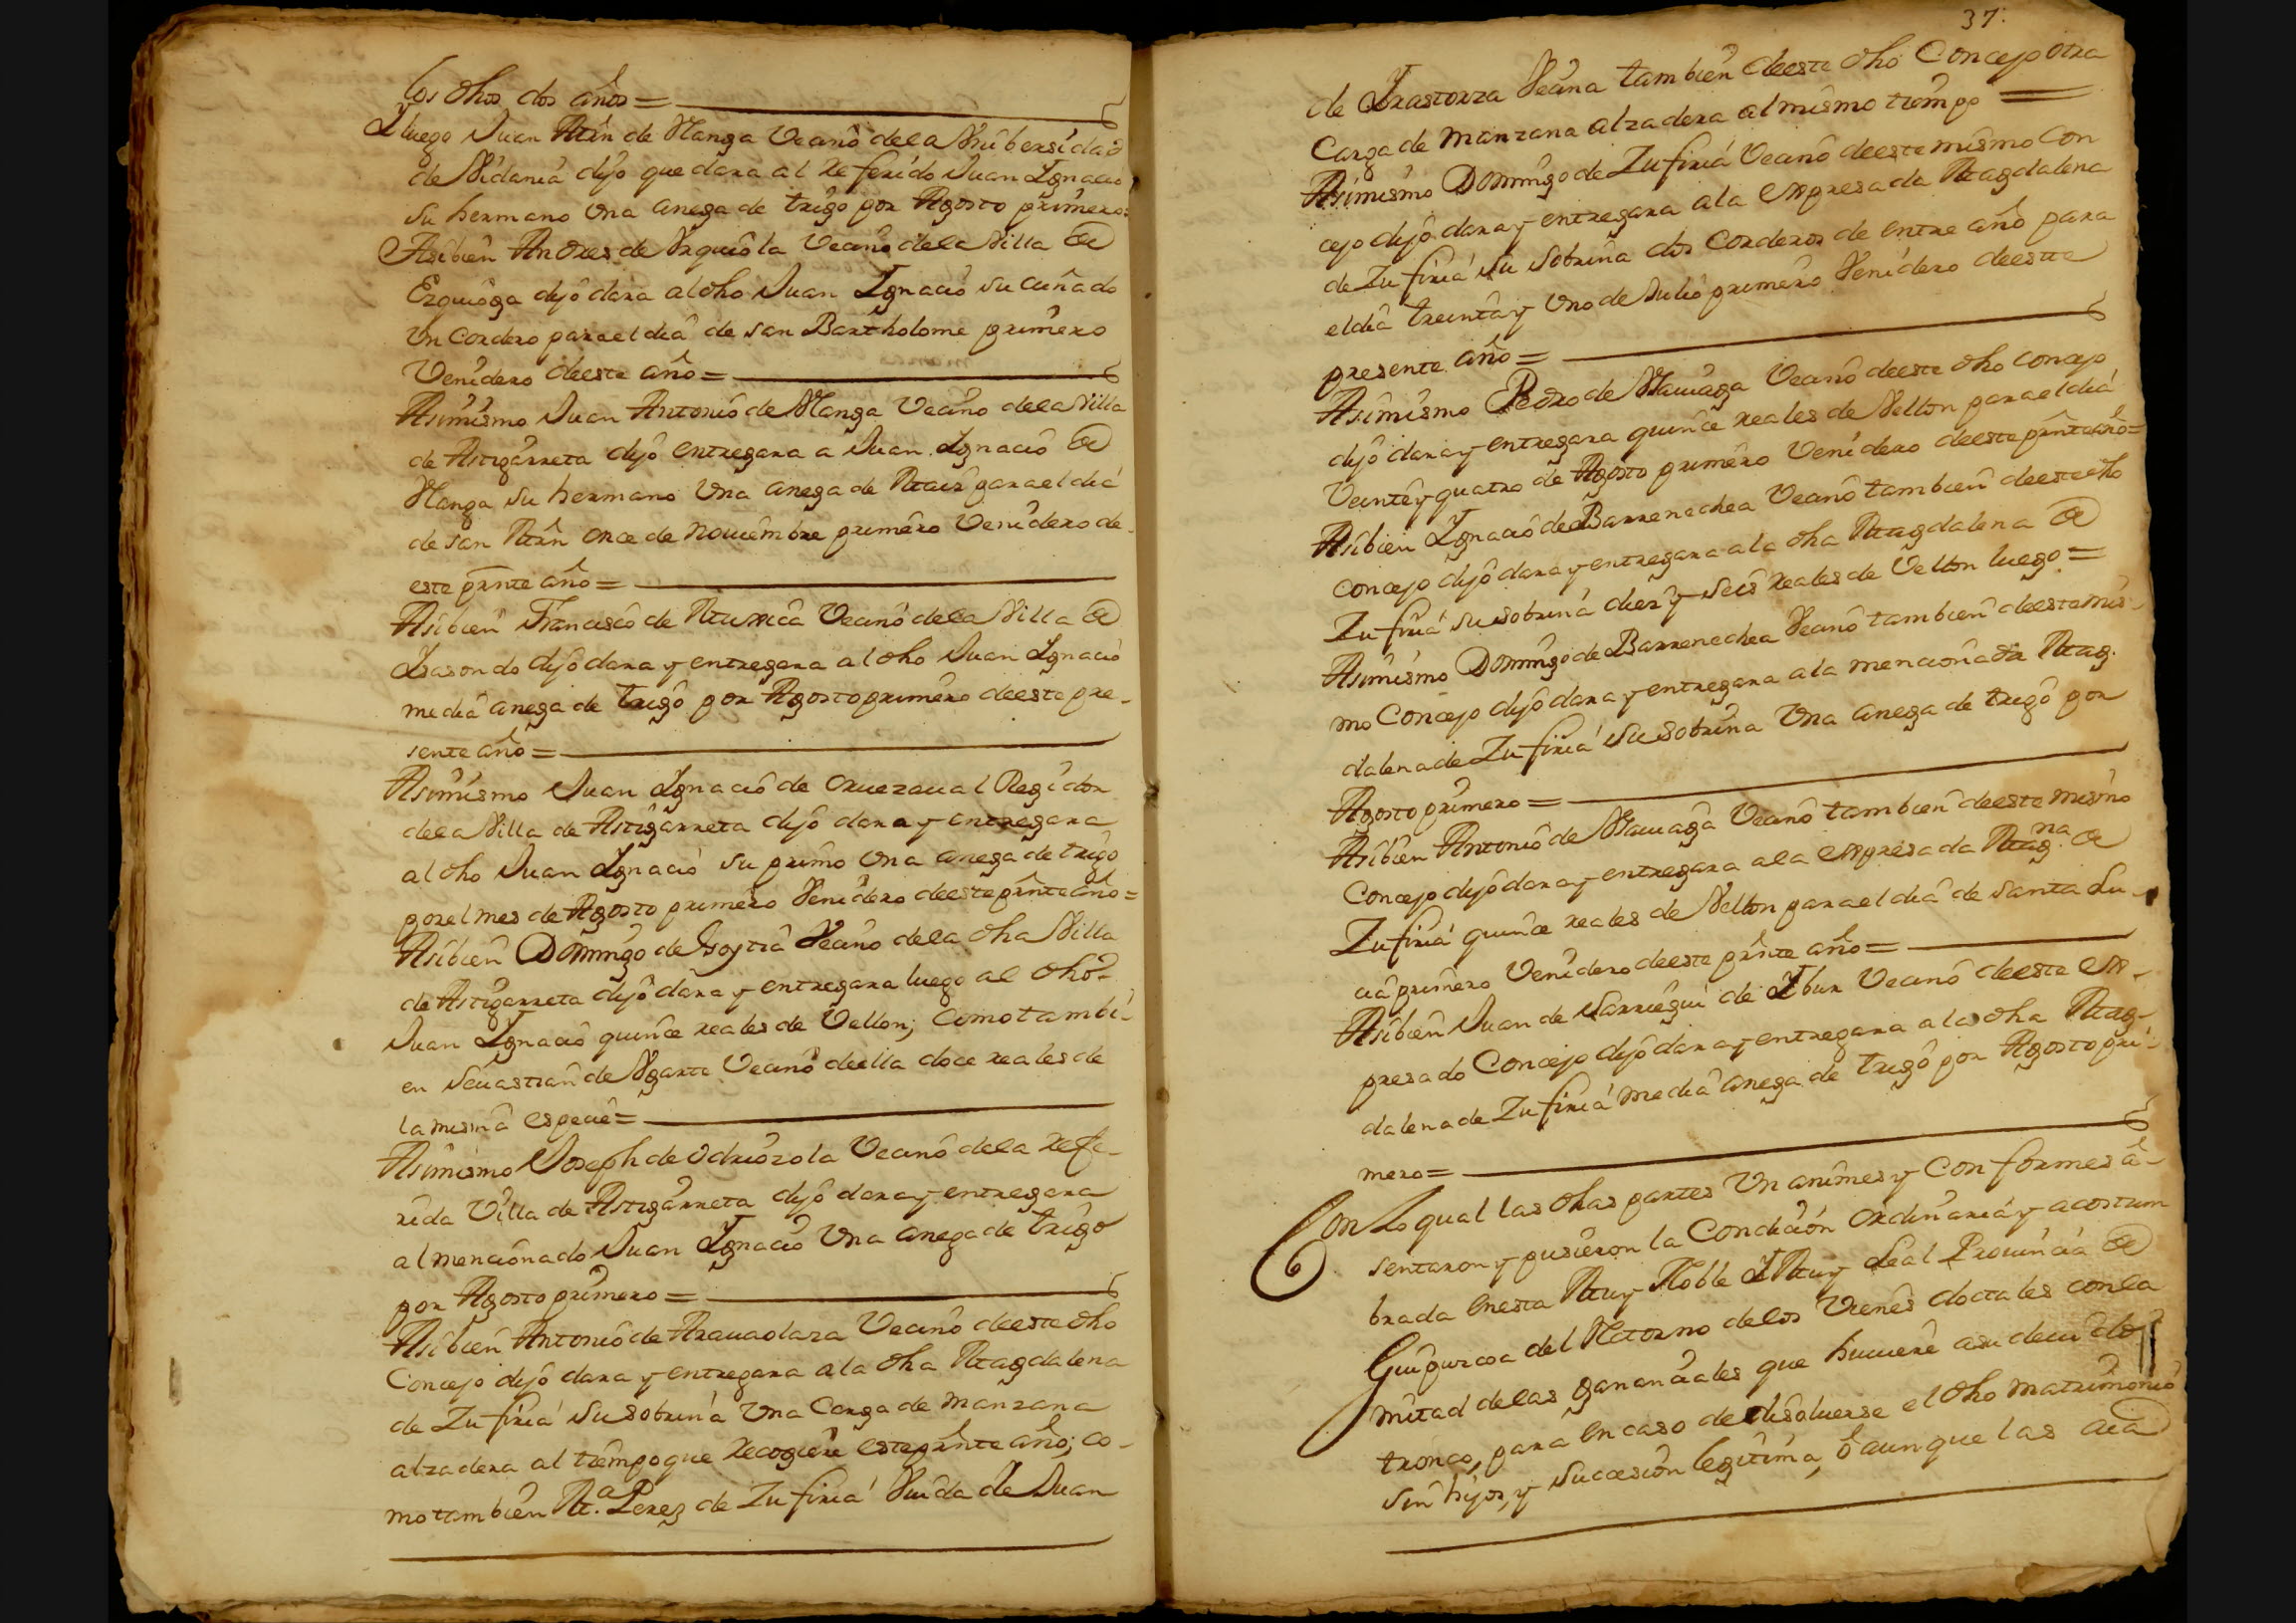 los dhos dos años =
Y luego Juan Mrn de Manga Vecino dela Vnibersidad
de Vidania dijo que dara al referido Juan Ygnacio
su hermano Una anega de trigo por Agosto primero =
Asibien Andres de Vrquiola Vecino dela Villa de
Ezquioga dijo dara al dho Juan Ygnacio su cuñado
Un cordero para el dia de san Bartholome primero
Venidero deeste año =
Asimismo Juan Antonio de Manga Vecino dela Villa
de Astigarreta dijo entregara a Juan Ygnacio de
Manga su hermano Una anega de Maiz para el dia
de san Mrn once de Nouiembre primero Venidero de
este prnte año =
Asibien Francisco de Muxica Vecino dela Villa de
Ysasondo dijo dara y entregara al dho Juan Ygnacio
media anega de trigo por Agosto primero deeste pre-
sente año =
Asimismo Juan Ygnacio de Oruezaual Regidor
dela Villa de Astigarreta dijo dara y entregara
al dho Juan Ygnacio su primo Una anega de trigo
por el mes de Agosto primero Venidero deeste prnte año =
Asibien Domingo de Ysoytia Vecino dela dha Villa
de Astigarreta dijo dara y entregara luego al dho
Juan Ygnacio quince reales de Vellon; como tambi-
en Seuastian de Vgarte Vecino deella doce reales de
la misma especie =
Asimismo Joseph de Odriozola Vecino dela refe-
rida Villa de Astigarreta dijo dara y entregara
al mencionado Juan Ygnacio Una anega de trigo
por Agosto primero =
Asibien Antonio de Arauaolaza Vecino deeste dho
Concejo dijo dara y entregara ala dha Magdalena
de Zufiria su sobrina Una Carga de Manzana
alzadera al tiempo que Recogiere este prnte año; co-
mo tambien Ma. Perez de Zufiria Viuda de Juan
37.
de Yrastorza Vecina tambien deeste dho Concejo otra
Carga de manzana alzadera al mismo tiempo =
Asimismo Domingo de Zufiria Vecino deeste mismo Con
cejo dijo dara y entregara ala expresada Magdalena
de Zufiria su sobrina dos Corderos de entre año para
el dia treinta y Uno de Julio primero Venidero deeste
presente año =
Asimismo Pedro de Mauaga Vecino deeste dho concejo
dijo dara y entregara quince reales de Vellon para el dia
Veinte y quatro de Agosto primero Venidero deeste prnte año =
Asibien Ygnacio de Barrenechea Vecino tambien deeste dho
concejo dijo dara y entregara ala dha Magdalena de
Zufiria su sobrina diez y seis reales de Vellon luego =
Asimismo Domingo de Barrenechea Vecino tambien deeste mis-
mo Concejo dijo dara y entregara ala mencionada Mag-
dalena de Zufiria su sobrina Una anega de trigo por
Agosto primero =
Asibien Antonio de Mauaga Vecino tambien deeste mismo
Concejo dijo dara y entregara ala expresada Mag.na de
Zufiria quince reales de Vellon para el dia de santa Lu-
cia primero Venidero deeste prnte año =
Asibien Juan de Sarriegui de Ybur Vecino deeste ex-
presado Concejo dijo dara y entregara a la dha Mag-
dalena de Zufiria media anega de trigo por Agosto pri-
mero =
Con Lo qual las dhas partes Unanimes y Conformes a-
sentaron y pusieron la Condicion ordinaria y acostum
brada en esta Muy Noble Y Muy Leal Prouincia de
Guipuzcoa del Retorno delos Vienes doctales con la
mitad delas gananciales que huuiere a su deuido
tronco, para en caso de disoluerse el dho matrimonio
sin hijos, y succesion legitima, o aunque las aia